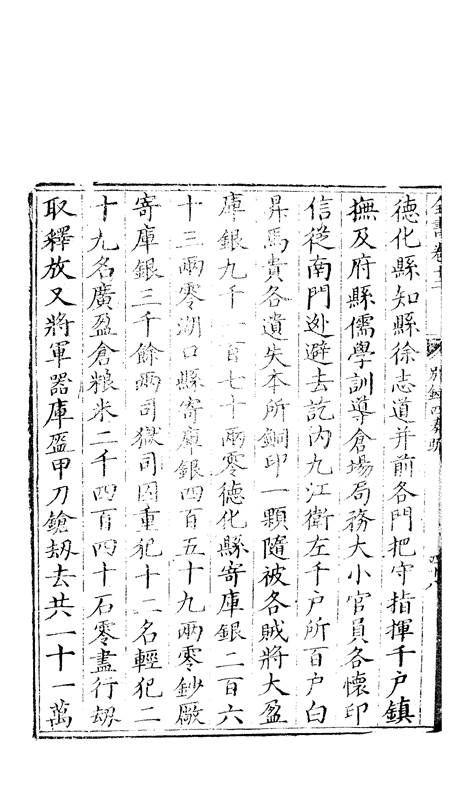 全書卷十二 別錄四奏疏 四十八
德化縣知縣徐志道并前各門把守指揮千戶鎮
撫及府縣儒學訓導倉場局務大小官員各懷印
信從南門迯避去訖內九江衛左千户所百户白
昇馬貴各遺失本所銅印一顆隨被各賊將大盈
庫銀九千一百七十兩零德化縣寄庫銀二百六
十三兩零湖口縣寄庫銀四百五十九兩零鈔厰
寄庫銀三千餘兩司獄司囚重犯十二名輕犯二
十九名廣盈倉粮米二千四百四十石零盡行刼
取釋放又將軍器庫盔甲刀鎗刼去共一十一萬